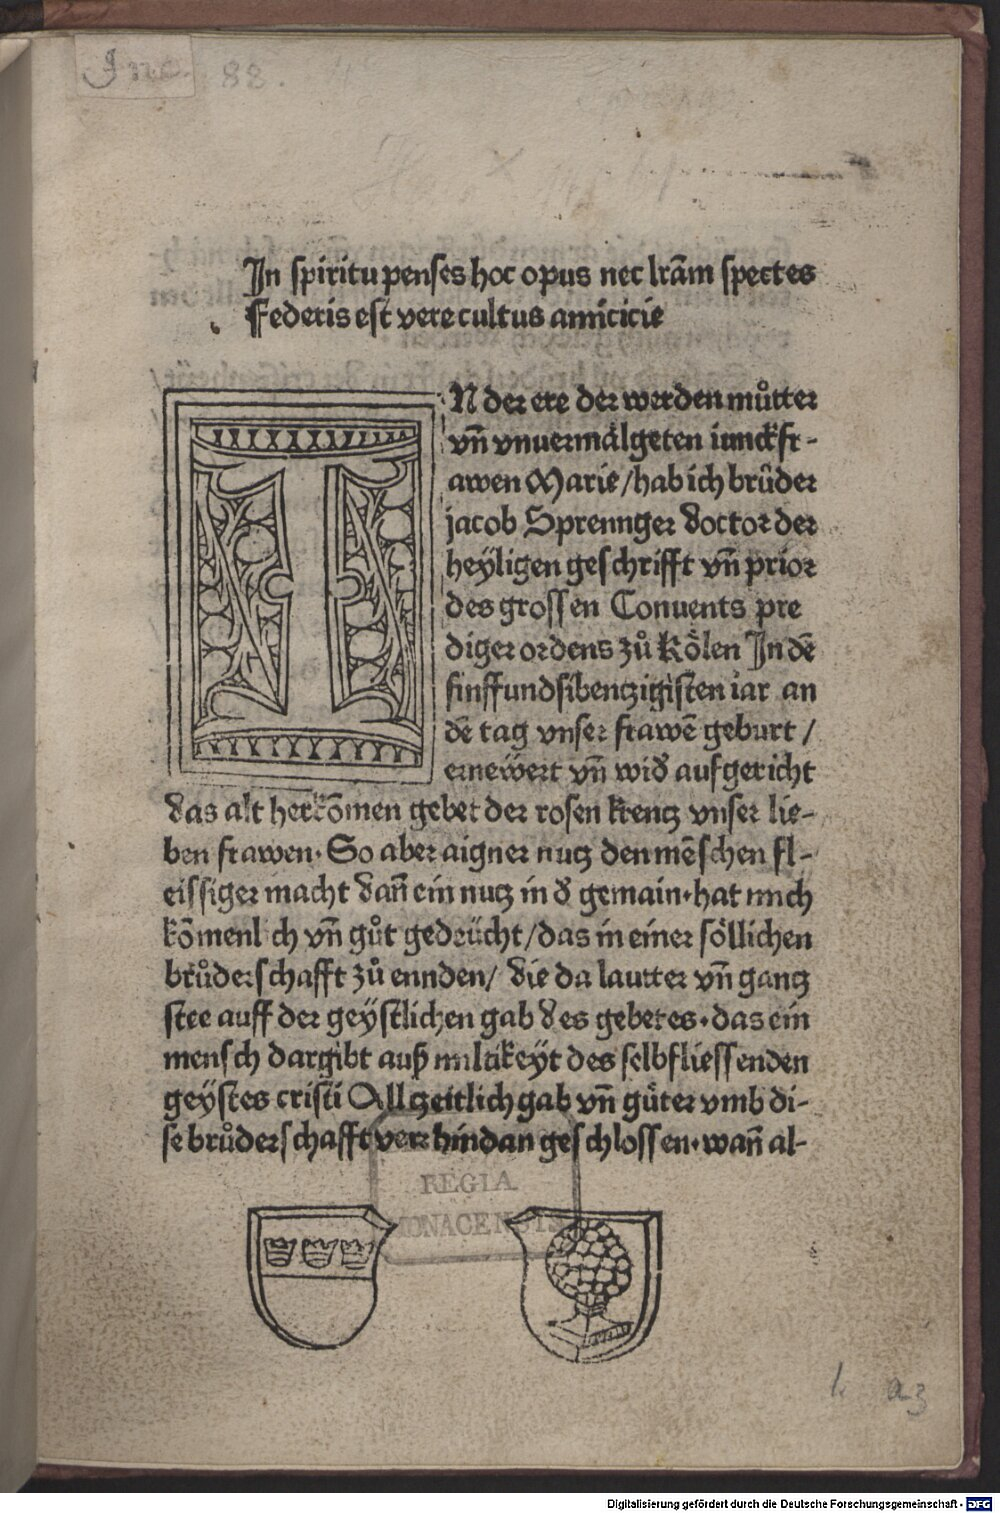 Inc. 88.
In spiritu penses hoc opus nec lrãm spectes
Federis est vere cultus amicicie
IN der ere der werden můtter
vñ vnuermälgeten iunckfr-
awen Marie/hab ich brůder
jacob Sprennger doctor der
heÿligen geschrifft vñ prior
des grossen Conuents pre
diger ordens zů Kölen In dẽ
finffundsibentzigisten iar an
dẽ tag vnser frawẽ geburt/
ernewert vñ wid̕ aufgericht
das alt herkõmen gebet der rosen krentz vnser lie-
ben frawen· So aber aigner nutz den mẽschen fl-
eissiger macht dañ ein nutz in d̕ gemain·hat mich
kõmenlich vñ gůt gedeücht/das in einer söllichen
brůderschafft zů ennden/ die da lautter vñ gantz
stee auff der geÿstlichen gab des gebetes·das ein
mensch dargibt auß miltikeÿt des selbfliessenden
geÿstes cristi Allzeitlich gab vñ gůter vmb di-
se brůderschafft verr hindan geschlossen·wañ al-
REGIA
MONACENSIS
a3
Digitalisierung gefördert durch die Deutsche Forschungsgemeinschaft - DFG